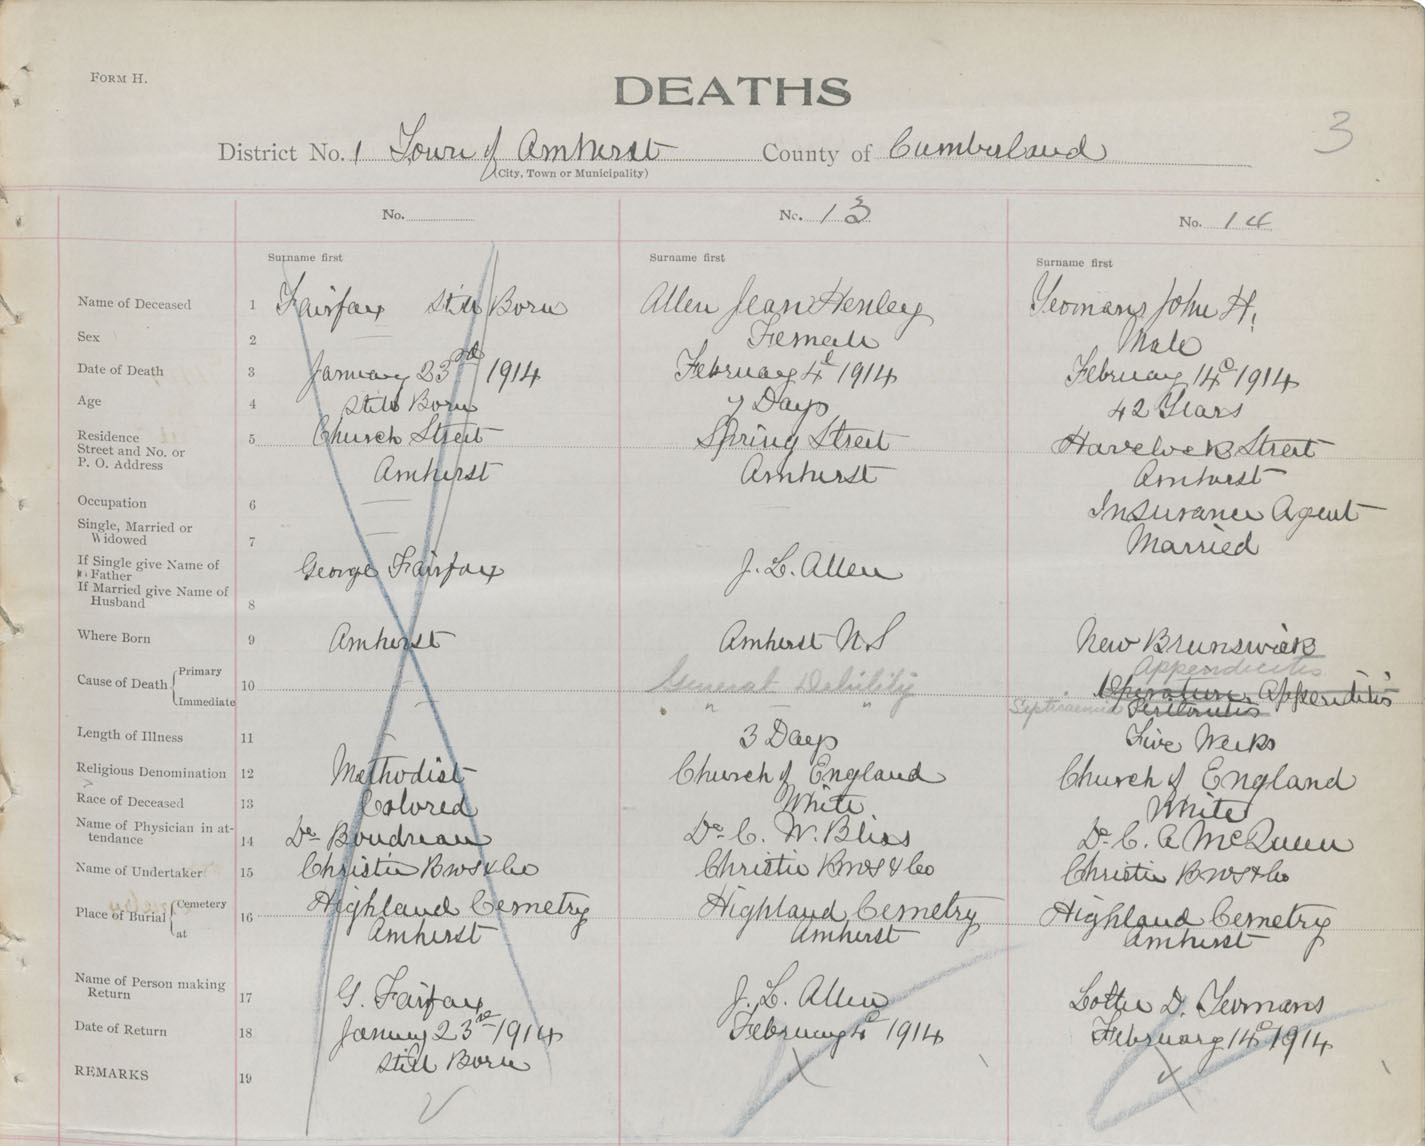 FORM H.
DEATHS
3
District No. 1 Town of Amherst County of Cumberland
(City, Town or Municipality)
No. No. 13 No. 14
Surname first Surname first Surname first
Name of Deceased 1 Fairfax Still Born Allen Jean Henley Yeomans John H.
Sex 2 Female Male
Date of Death 3 January 23rd 1914 February 4th 1914 February 14th 1914
Age 4 Still Born 7 Days 42 Years
Residence 5 Church Street Spring Street Havelock Street
Street and No. or
P. O. Address Amherst Amherst Amherst
Occupation 6 Insurance Agent
Single, Married or
Widowed 7 Married
If Single give Name of
Father George Fairfax J. L. Allen
If Married give Name of
Husband 8
Where Born 9 Amherst Amherst N.S New Brunswick
Appendicitis
Cause of Death Primary 10 General Debility Operation Appendicitis
Immediate " " Septicaemia Peritonitis
Length of Illness 11 3 Days Five Weeks
Religious Denomination 12 Methodist Church of England Church of England
Race of Deceased 13 Colored White White
Name of Physician in at-
tendance 14 Dr Boudreau Dr C. W. Bliss Dr C. A McQueen
Name of Undertaker 15 Christie Bros & Co Christie Bros & Co Christie Bros & Co
Place of Burial Cemetery 16 Highland Cemetry Highland Cemetry Highland Cemetry
at Amherst Amherst Amherst
Name of Person making
Return 17 G. Fairfax J. L. Allen Lottie D. Yeomans
Date of Return 18 January 23rd 1914 February 4th 1914 February 14th 1914
REMARKS 19 Still Born